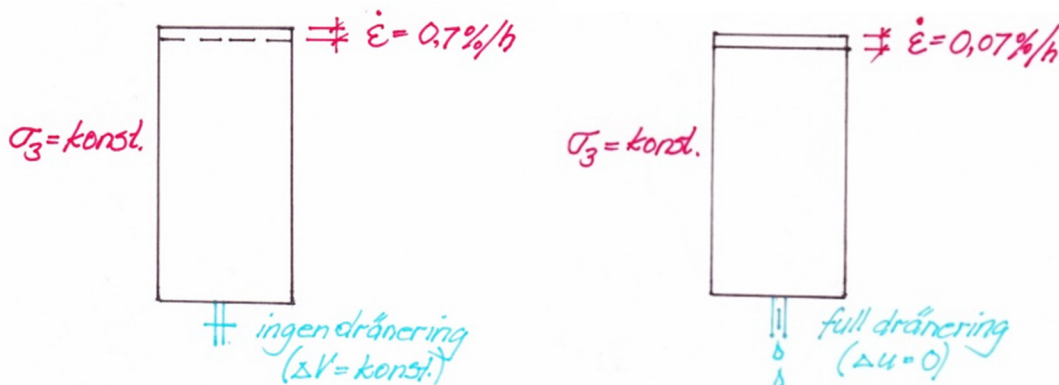 ε̇ = 0,7%/h
σ₃ = konst.
ingen dränering
(ΔV = konst.)
ε̇ = 0,07%/h
σ₃ = konst.
full dränering
(Δu = 0)